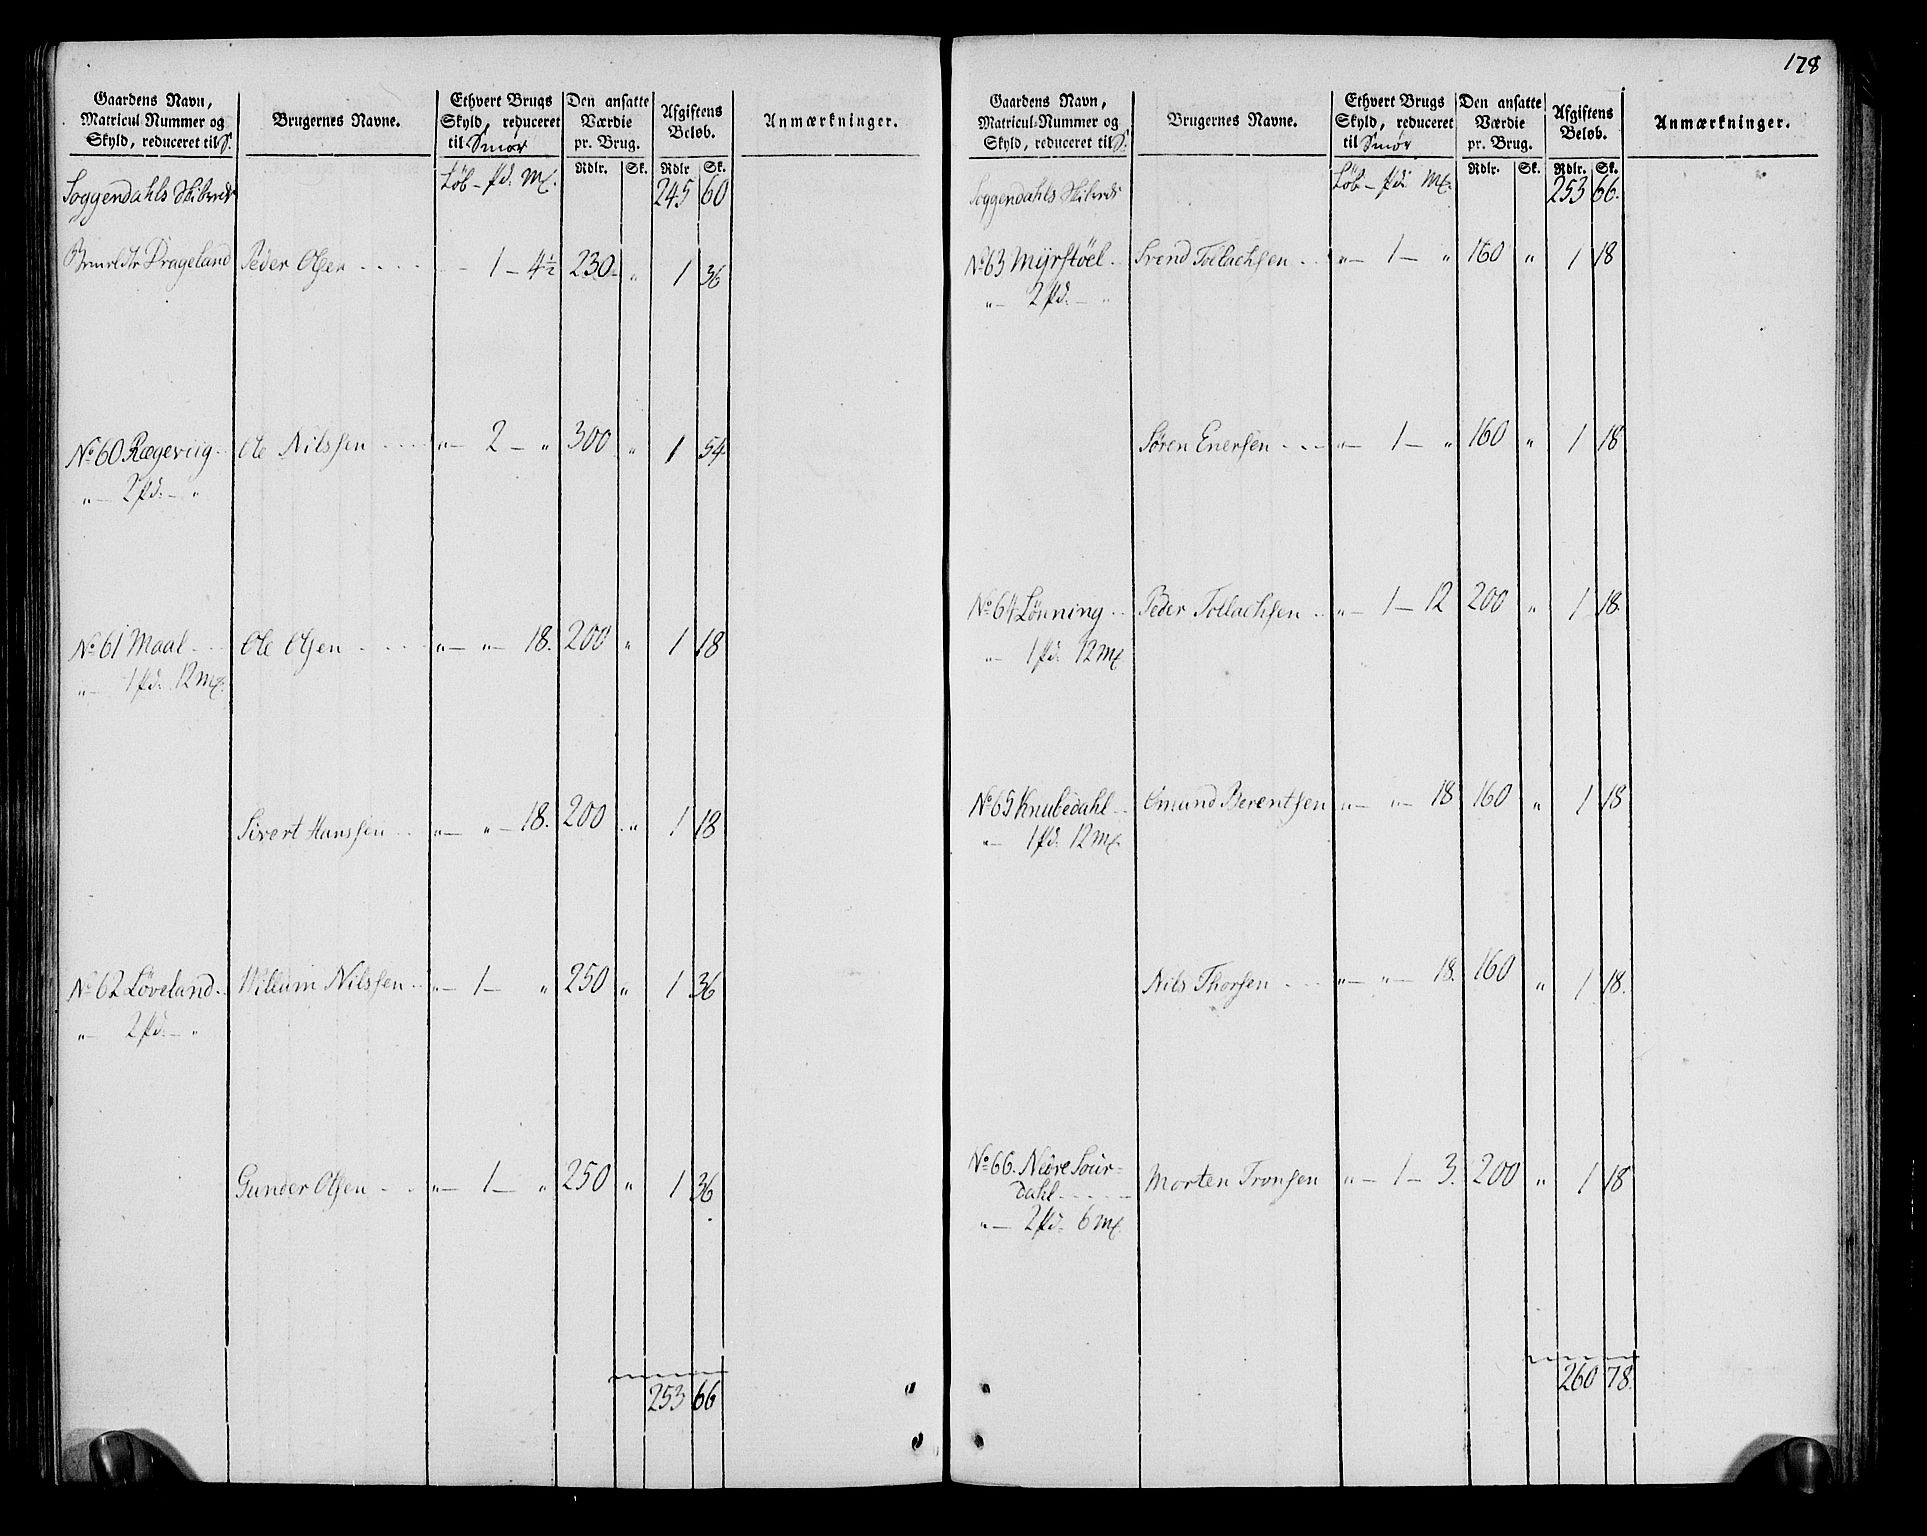 178
Gaardens Navn, Matricul-Nummer og Skyld, reduceret til S. | Brugernes Navne. | Ethvert Brugs Skyld, reduceret til Smør | Den ansatte Værdie pr. Brug. | Afgiftens Beløb. | Anmærkninger.
Løb – Pd. Mk. | Rdlr. | Sk. | Rdlr | Sk.
Soggendahls Skibrede 245 60
Drageland Peder Olsen - - - - - 1 – 4½ 230 " 1 36
No 60 Rægeviig Ole Nilssen - - - " – 2 – " 300 " 1 54
" – 2 Pd. – "
No 61 Maal - - Ole Olsen - - - - " – " – 18. 200 " 1 18
" – 1 Pd. 12 Mk.
Sivert Hanssen - - " – " – 18. 200 " 1 18
No 62 Løveland - - Willum Nilssen - - " – 1 – " 250 " 1 36
" – 2 Pd. – "
Gunder Olsen - - " – 1 – " 250 " 1 36
253 66
Gaardens Navn, Matricul-Nummer og Skyld, reduceret til S. | Brugernes Navne. | Ethvert Brugs Skyld, reduceret til Smør | Den ansatte Værdie pr. Brug. | Afgiftens Beløb. | Anmærkninger.
Løb – Pd. Mk. | Rdlr. | Sk. | Rdlr. | Sk.
Soggendahls Skibrede 253 66.
No 63 Myrstøel - Svend Tollachsen - - " – 1 – " 160 " 1 18
" – 2 Pd. – "
Søren Enersen - - - " – 1 – " 160 " 1 18
No 64 Lønning - - Peder Tollachsen - - " – 1 – 12 200 " 1 18.
" – 1 Pd. 12 Mk
No 65 Knubedahl - - Omund Berentsen " – " – 18 160 " 1 18
" – 1 Pd. 12 Mk.
Nils Thorsen - - - " – " – 18. 160 " 1 18.
No 66. Nedre Sour=
dahl - - - - - Morten Tronsen " – 1 – 3. 200 " 1 18
" – 2 Pd. 6 Mk.
260 78.